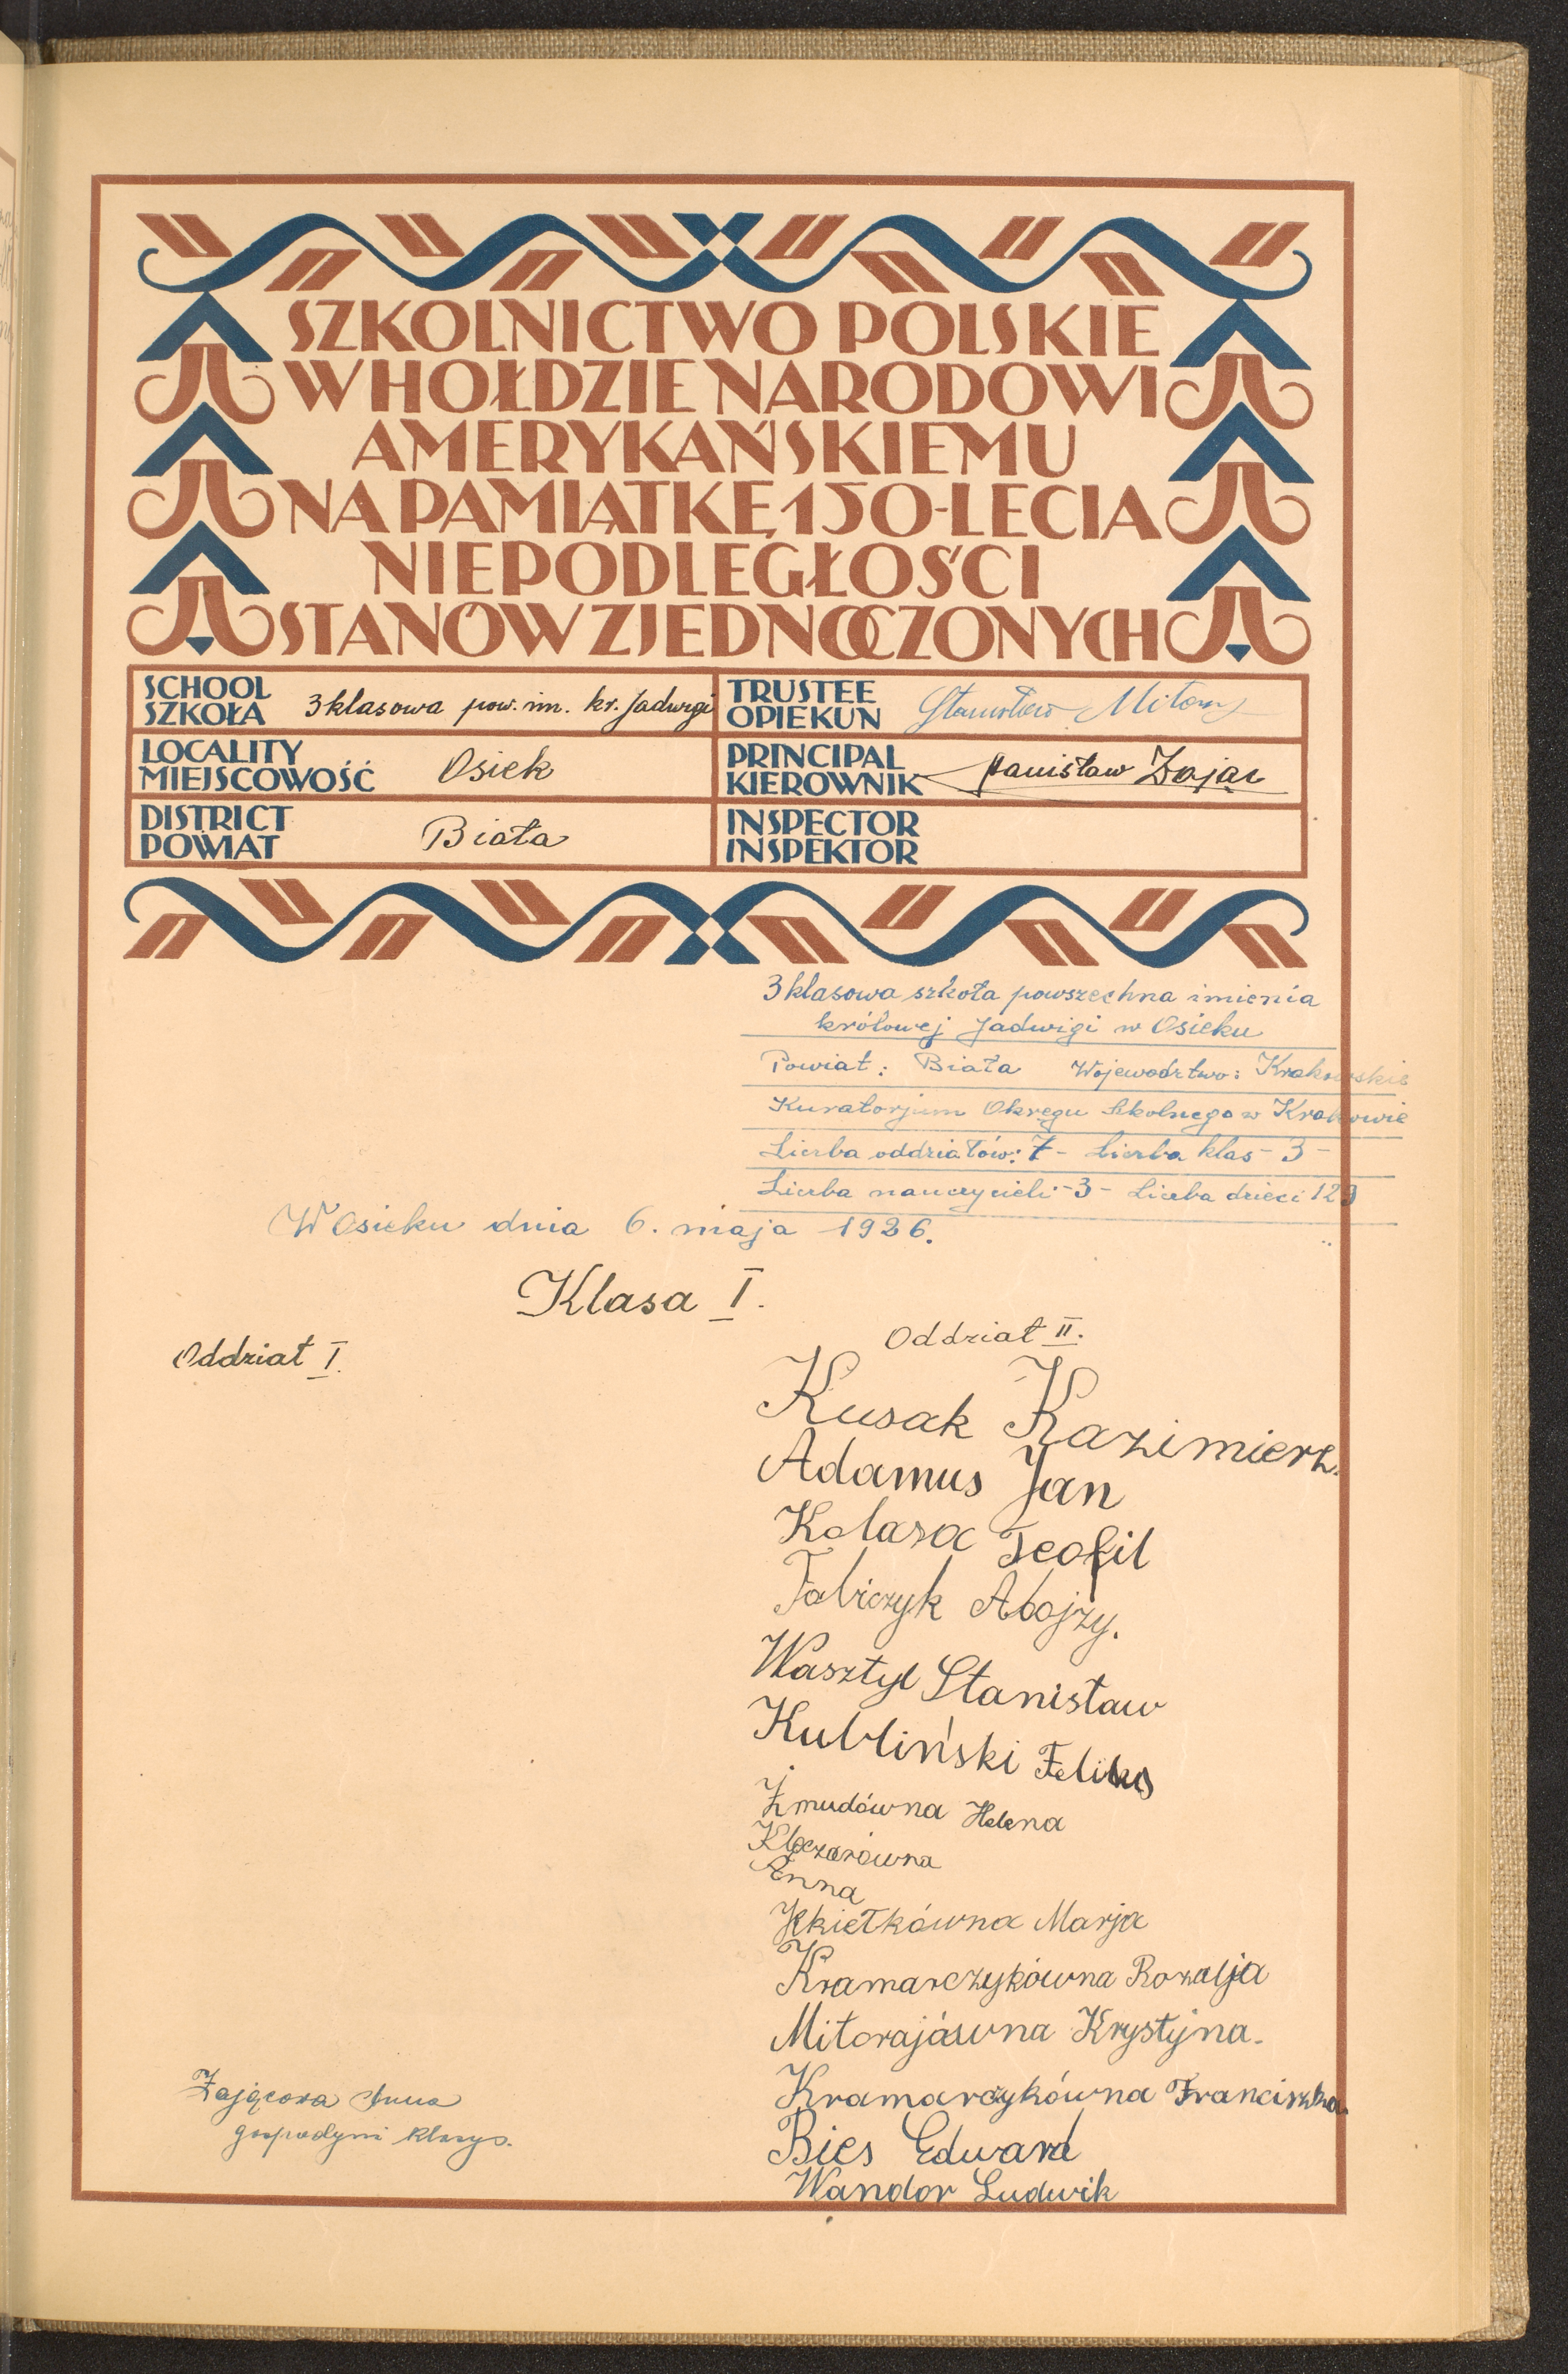 SZKOLNICTWO POLSKIE
W HOŁDZIE NARODOWI
AMERYKAŃSKIEMU
NA PAMIĄTKĘ 150-LECIA
NIEPODLEGŁOŚCI
STANÓW ZJEDNOCZONYCH
SCHOOL
SZKOŁA 3 klasowa pow. im. kr. Jadwigi
TRUSTEE
OPIEKUN Stanisław
LOCALITY
MIEJSCOWOŚĆ Osiek
PRINCIPAL
KIEROWNIK Stanisław Zając
DISTRICT
POWIAT Biała
INSPECTOR
INSPEKTOR
3 klasowa szkoła powszechna imienia
królowej Jadwigi w Osieku
Powiat: Biała Województwo: Krakowskie
Kuratorjum Okręgu Szkolnego w Krakowie
Liczba oddziałów: 7 - Liczba klas - 3 -
Liczba nauczycieli - 3 - Liczba dzieci 129
W Osieku dnia 6. maja 1926.
Klasa I.
Oddział I.
Oddział II.
Kusak Kazimierz.
Adamus Jan
Kolasa Teofil
Fabiczyk Alojzy.
Wasztyl Stanisław
Kubliński Feliks
Żmudówna Helena
Kloczarówna
Anna
Kkiełkówna Marja
Kramarczykówna Rozalja
Mitorajówna Krystyna.
Kramarczykówna Franciszka
Bies Edward
Wandor Ludwik
Zającowa Anna
gospodyni klasy.